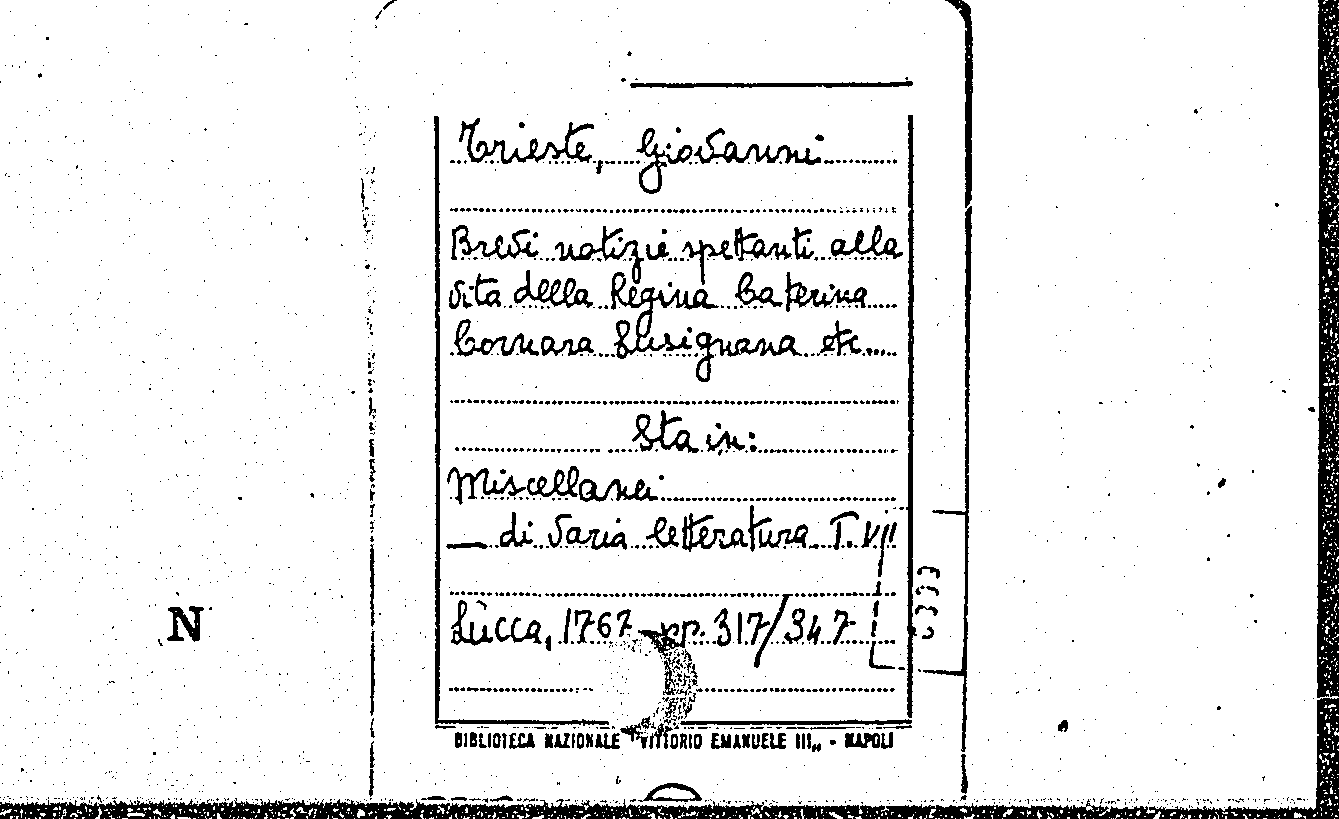 Trieste, Giovanni
Brevi notizie spettanti alla
vita della Regina Caterina
Cornara Lusignana etc.
Sta in:
Miscellanei
— di varia letteratura T. VII
Lucca, 1767 pp. 317/347
N
BIBLIOTECA NAZIONALE "VITTORIO EMANUELE III„ - NAPOLI